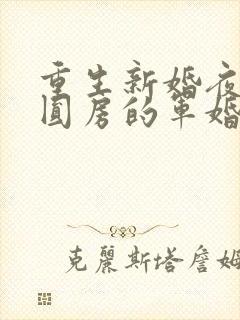 重生新婚夜
圆房的军婚
克丽斯塔詹姆